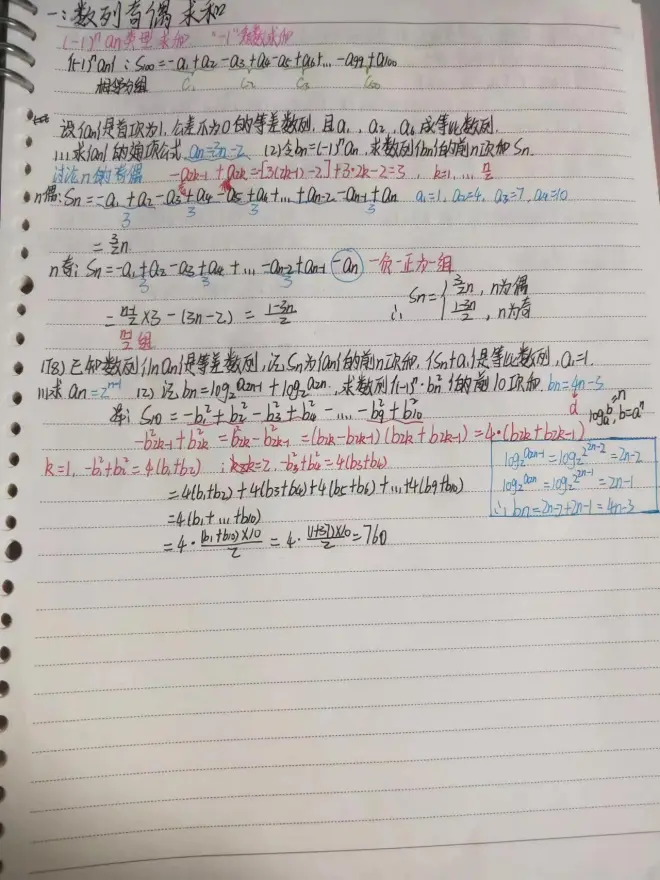 一:数列奇偶求和
(-1)ⁿan类型求和 "-1"指数求和
{(-1)ⁿan}: S100=-a1+a2-a3+a4-a5+a6+...-a99+a100
相邻分组 C1 C2 C3 C50
设{an}是首项为1,公差不为0的等差数列,且a1,a2,a6成等比数列.
(1)求{an}的通项公式. an=3n-2 (2)令bn=(-1)ⁿan,求数列{bn}的前n项和Sn.
讨论n的奇偶 -a2k-1+a2k=-[3(2k-1)-2]+3·2k-2=3, k=1,...n/2
n偶: Sn=-a1+a2-a3+a4-a5+a6+...+an-2-an-1+an a1=1, a2=4, a3=7, a4=10
3 3 3 3
=3/2n
n奇: Sn=-a1+a2-a3+a4+...-an-2+an-1-an 一负一正为一组
3 3 3
=n-1/2×3-(3n-2)=1-3n/2 ∴Sn={3/2n,n为偶
1-3n/2,n为奇
n-1/2组
(T8)已知数列{lnan}是等差数列,记Sn为{an}的前n项和,{Sn+a1}是等比数列,a1=1.
(1)求an=2ⁿ⁻¹ (2)记bn=log2a2n-1+log2a2n,求数列{(-1)ⁿ·bn²}的前10项和. bn=4n-3
d
logaᵇ=n b=aⁿ
解: S10=-b1²+b2²-b3²+b4²-...-b9²+b10²
-b²2k-1+b²2k=b²2k-b²2k-1=(b2k-b2k-1)(b2k+b2k-1)=4·(b2k+b2k-1)
k=1,-b1²+b2²=4(b1+b2) ; k=2,-b3²+b4²=4(b3+b4)
log2a2n-1=log2 2²ⁿ⁻²=2n-2
log2a2n=log2 2²ⁿ⁻¹=2n-1
∴bn=2n-2+2n-1=4n-3
=4(b1+b2)+4(b3+b4)+4(b5+b6)+...+4(b9+b10)
=4(b1+...+b10)
=4·(b1+b10)×10/2=4·(1+37)×10/2=760